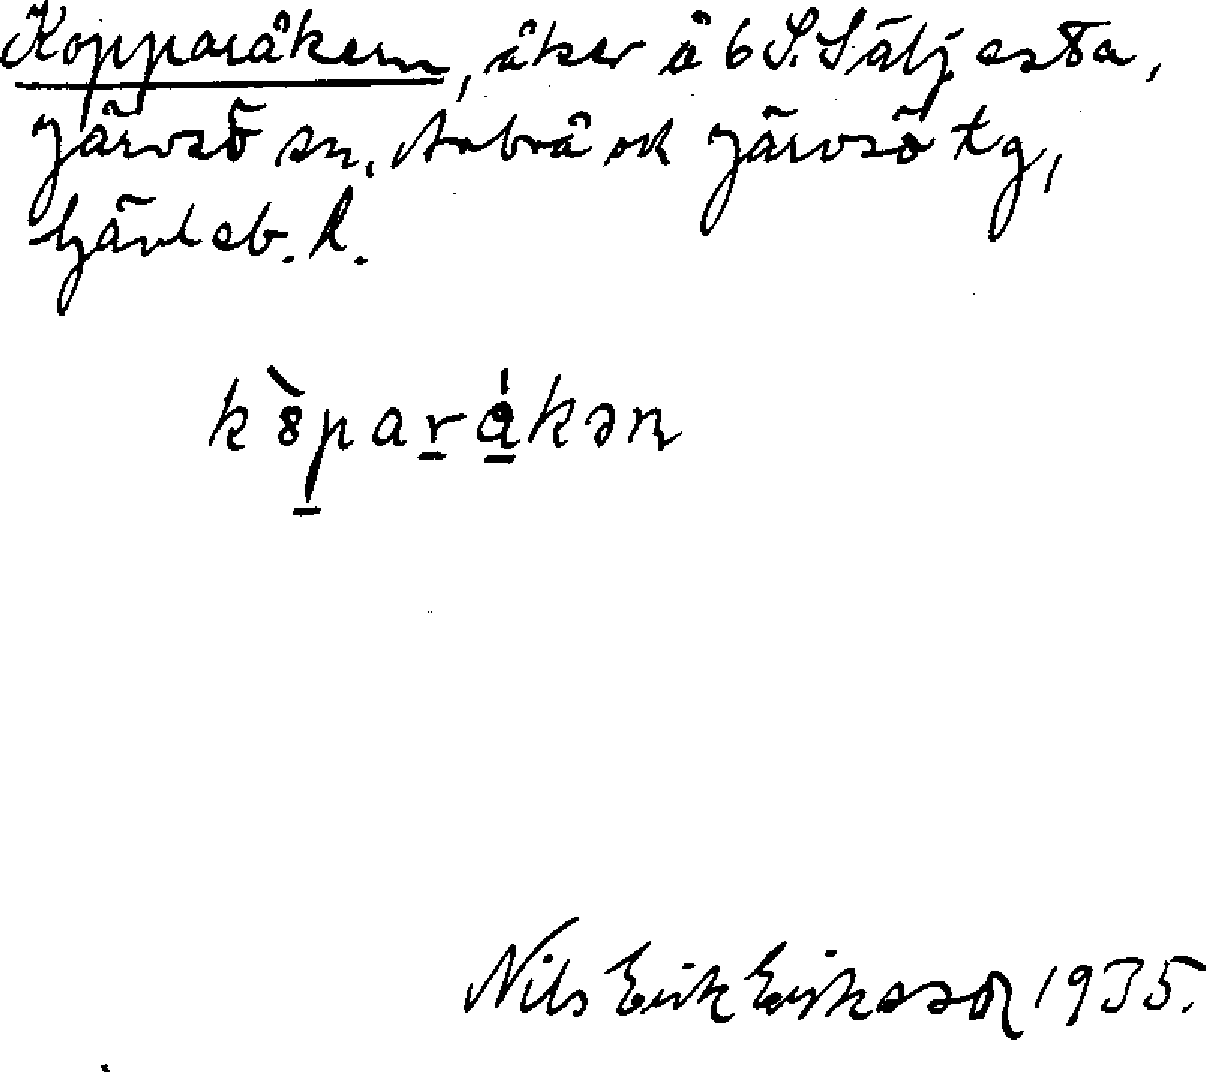 Kopparåkern, åker å 6 S. Säljesta,
Järvsö sn, Arbrå ok Järvsö tg,
Gävleb. l.
kòparákən
Nils Erik Eriksson 1935.